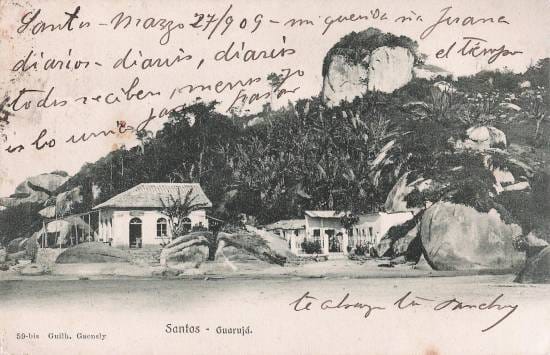 Santos - Marzo 27/909 - mi querida tia Juana
diarios - diarios, diarios
todos reciben, menos yo
es lo unico
pasar
el tiempo
te abraza tu
Santos - Guarujá.
59-bis Guilh. Gaensly